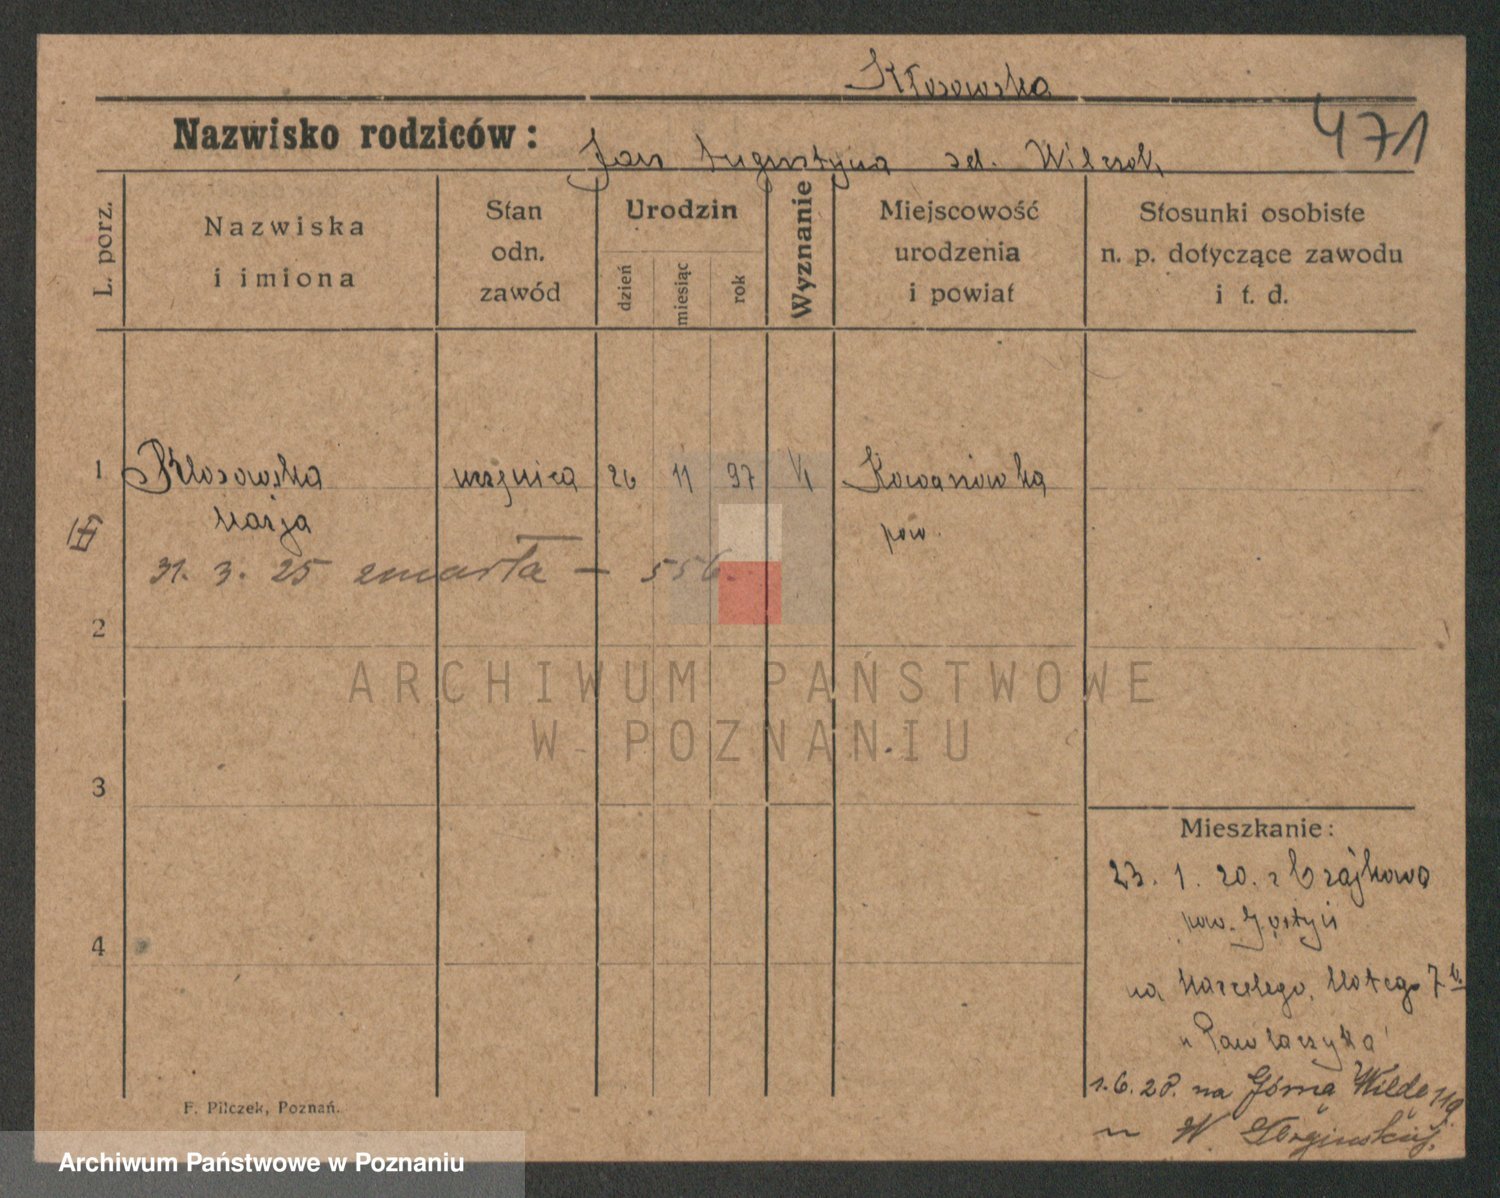 Kłosowska
471
Nazwisko rodziców: Jan Augustyna od. Wilczak
L. porz.
Nazwiska i imiona
Stan odn. zawód
Urodzin
dzień
miesiąc
rok
Wyznanie
Miejscowość urodzenia i powiat
Stosunki osobiste n. p. dotyczące zawodu i t. d.
1 Kłosowska 26 11 97 Kowanówka
Marja pow.
31. 3. 25 zmarła — 556.
2
3
4
ARCHIWUM PAŃSTWOWE
W POZNANIU
Mieszkanie:
23. 1. 20. z Czajkowa
pow. Gostyń
na Marcelego Motego 7
u Pawlaczyka
1. 6. 20. na Górną Wildę 119
u W.
F. Pilczek, Poznań.
Archiwum Państwowe w Poznaniu